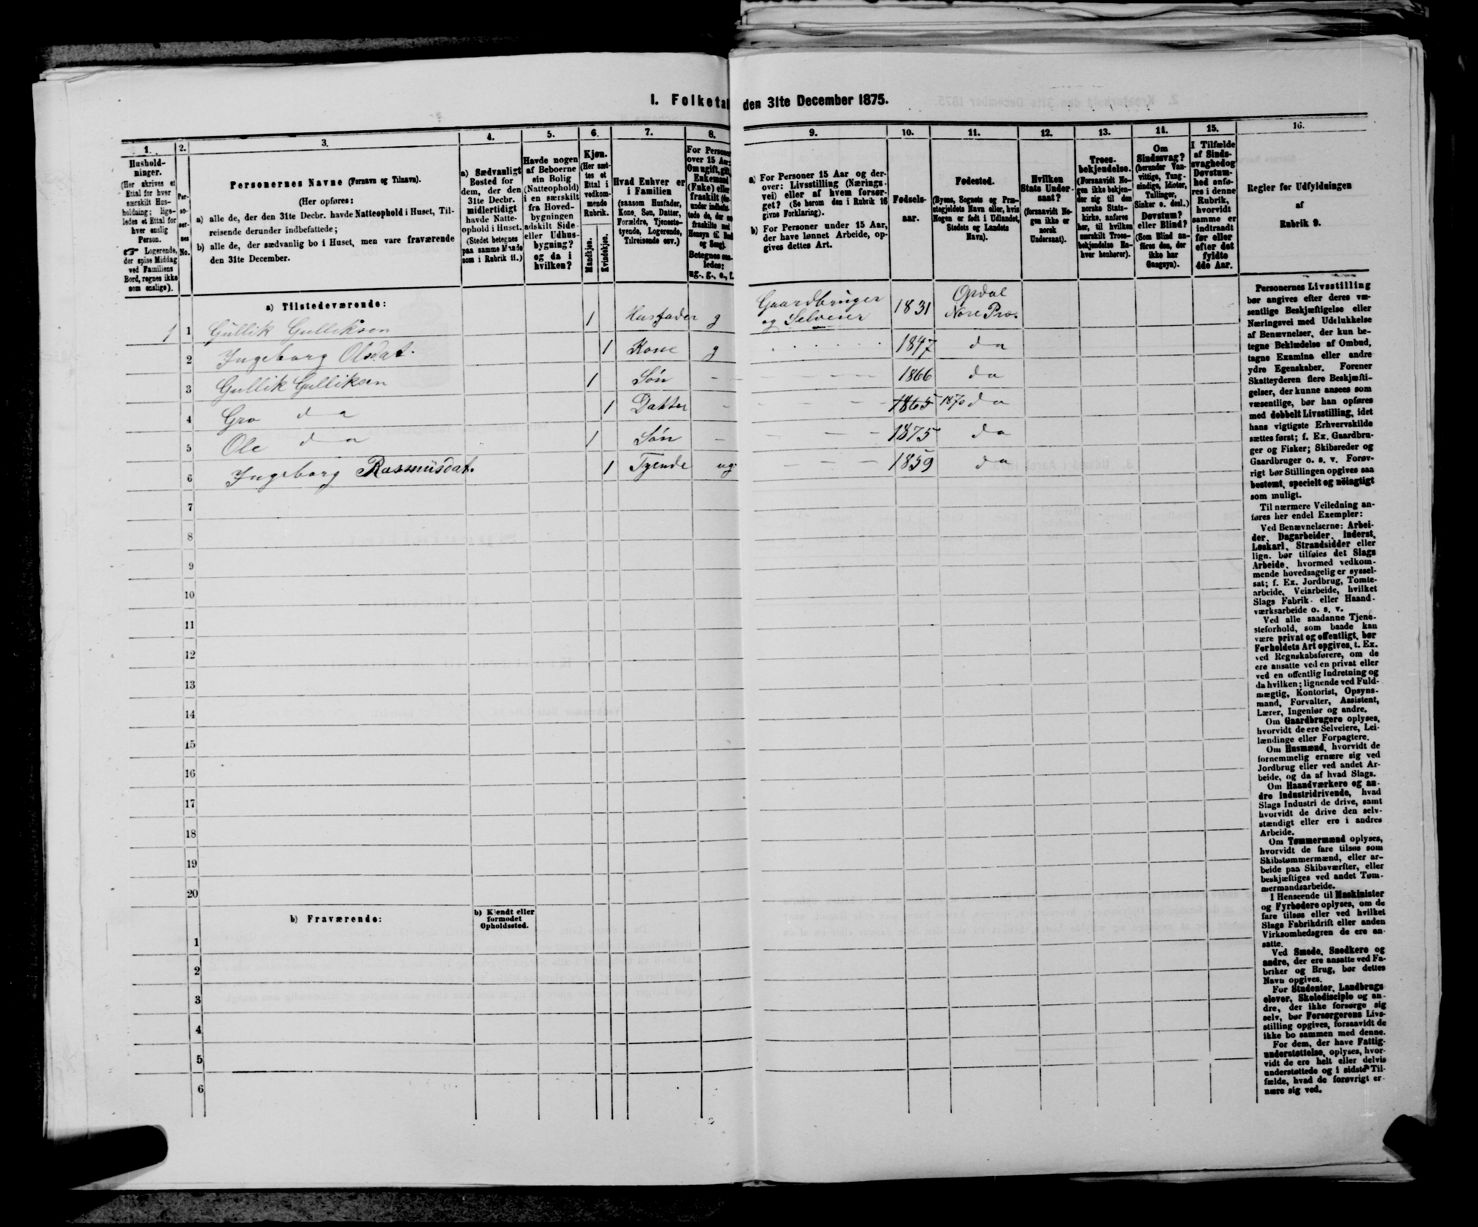 I. Folketal den 31te December 1875.
1.
2.
3.
4.
5.
6.
7.
8.
9.
10.
11.
12.
13.
14.
15.
16.
Hushold-
ninger.
(Her skrives et
Ettal for hver
særskilt Hus-
holdning; lige-
ledes et Ettal for
hver enslig
Person.
☞ Logerende,
der spise Middag
ved Familiens
Bord, regnes ikke
som enslige).
Per-
so-
ner-
nes
No.
Personernes Navne (Fornavn og Tilnavn).
(Her opføres:
a) alle de, der den 31te Decbr. havde Natteophold i Huset, Til-
reisende derunder indbefattede;
b) alle de, der sædvanlig bo i Huset, men vare fraværende
den 31te December.
a) Sædvanligt
Bosted for
dem, der den
31te Decbr.
midlertidigt
havde Natte-
ophold i Huset.
(Stedet betegnes
paa samme Maade
som i Rubrik 11.)
Havde nogen
af Beboerne
ein Bolig
(Natteophold)
i en særskilt
fra Hoved-
bygningen
adskilt Side-
eller Udhus-
bygning?
og da i
hvilken?
Kjøn.
(Her sæt-
tes et
Ettal i
vedkom-
mende
Rubrik.
Mandkjøn.
Kvindekjøn.
Hvad Enhver er
i Familien
(saasom Husfader,
Kone, Søn, Datter,
Forældre, Tjeneste-
tyende, Logerende,
Tilreisende osv.)
For Persone
over 15 Aar:
Om ugift, gift,
Enkemand
(Enke) eller
fraskilt
a) For Personer 15 Aar og der-
over: Livsstilling (Nærings-
vei) eller af hvem forsør-
get? (Se herom den i Rubrik 16
givne Forklaring).
b) For Personer under 15 Aar,
der have lønnet Arbeide, op-
gives dettes Art.
Fødsels-
aar.
Fødested.
(Byens, Sognets og Præ-
stegjeldets Navn eller, hvis
Nogen er født i Udlandet,
Stedets og Landets
Navn).
Hvilken
Stats Under-
saat?
(forsaavidt No-
gen ikke er
norsk
Undersaat).
Troes-
bekjendelse.
(Forsaavidt No-
gen ikke bekjen-
der sig til den
norske Stats-
kirke, anføres
her, til hvilken
særskilt Troes-
bekjendelse En-
hver henhører).
Om
Sindssvag?
(herunder Van-
vittige, Tung-
sindige, Idioter,
Tullinger,
Sinker o. desl.)
Døvstum?
eller Blind?
(Som Blind an-
føres den, der
ikke har
Gangsyn).
I Tilfælde
af Sinds-
svaghed og
Døvstum-
hed anfø-
res i denne
Rubrik,
hvorvidt
samme er
indtraadt
før eller
efter det
fyldte
4de Aar.
Regler for Udfyldningen
af
Rubrik 9.
a) Tilstedeværende:
1 1 Gullik Gulliksen 1 Husfader g Gaardbruger og Selveier 1831 Opdal Nore Præ.
2 Ingeborg Olsdat. 1 Kone g 1847 da
3 Gullik Gulliksen 1 Søn – 1866 da
4 Gro da 1 Datter – 1865 1870 da
5 Ole da 1 Søn – 1875 da
6 Ingeborg Rasmusdat. 1 Tyende ug 1859 da
7
8
9
10
11
12
13
14
15
16
17
18
19
20
b) Fraværende:
b) Kjendt eller
formodet
Opholdssted.
1
2
3
4
5
6
Personernes Livsstilling
bør angives efter deres væ-
sentlige Beskjæftigelse eller
Næringsvei med Udelukkelse
af Benævnelser, der kun be-
tegne Beklædelse af Ombud,
tagne Examina eller andre
ydre Egenskaber. Forener
Skatteyderen flere Beskjæfti-
gelser, der kunne ansees som
væsentlige, bør han opføres
med dobbelt Livsstilling, idet
hans vigtigste Erhvervskilde
sættes først; f. Ex. Gaardbru-
ger og Fisker; Skibsreder og
Gaardbruger o. s. v. Forøv-
rigt bør Stillingen opgives saa
bestemt, specielt og nøiagtigt
som muligt.
Til nærmere Veiledning an-
føres her endel Exempler:
Ved Benævnelserne: Arbei-
der, Dagarbeider, Inderst,
Løskarl, Strandsidder eller
lign. bør tilføies det Slags
Arbeide, hvormed vedkom-
mende hovedsagelig er syssel-
sat; f. Ex. Jordbrug, Tomte-
arbeide, Veiarbeide, hvilket
Slags Fabrik- eller Haand-
værksarbeide o. s. v.
Ved alle saadanne Tjene-
steforhold, som baade kan
være privat og offentligt, bør
Forholdets Art opgives, t. Ex.
ved Regnskabsførere, om de
ere ansatte ved en privat eller
ved en offentlig Indretning og
da hvilken; lignende ved Fuld-
mægtig, Kontorist, Opsyns-
mand, Forvalter, Assistent,
Lærer, Ingeniør og andre.
Om Gaardbrugere oplyses,
hvorvidt de ere Selveiere, Lei-
lændinge eller Forpagtere.
Om Husmænd, hvorvidt de
fornemmelig ernære sig ved
Jordbrug eller ved andet Ar-
beide, og da af hvad Slags.
Om Haandværkere og an-
dre Industridrivende, hvad
Slags Industri de drive, samt
hvorvidt de drive den selv-
stændigt eller ere i andres
Arbeide.
Om Tømmermænd oplyses,
hvorvidt de fare tilsøs som
Skibstømmermænd, eller ar-
beide paa Skibsværfter, eller
beskjæftiges ved andet Tøm-
mermandsarbeide.
I Henseende til Maskinister
og Fyrbødere oplyses, om de
fare tilsøs eller ved hvilket
Slags Fabrikdrift eller anden
Virksomhedsgren de ere an-
satte.
Ved Smede, Snedkere og
andre, der ere ansatte ved Fa-
briker og Brug, bør dettes
Navn opgives.
For Studenter, Landbrugs-
elever, Skoledisciple og an-
dre, der ikke forsørge sig
selv, bør Forsørgerens Livs-
stilling opgives, forsaavidt de
ikke bo sammen med denne.
For dem, der have Fattig-
understøttelse, oplyses, hvor-
vidt de ere helt eller delvis
understøttede og i sidste Til-
fælde, hvad de forøvrigt er-
nære sig ved.